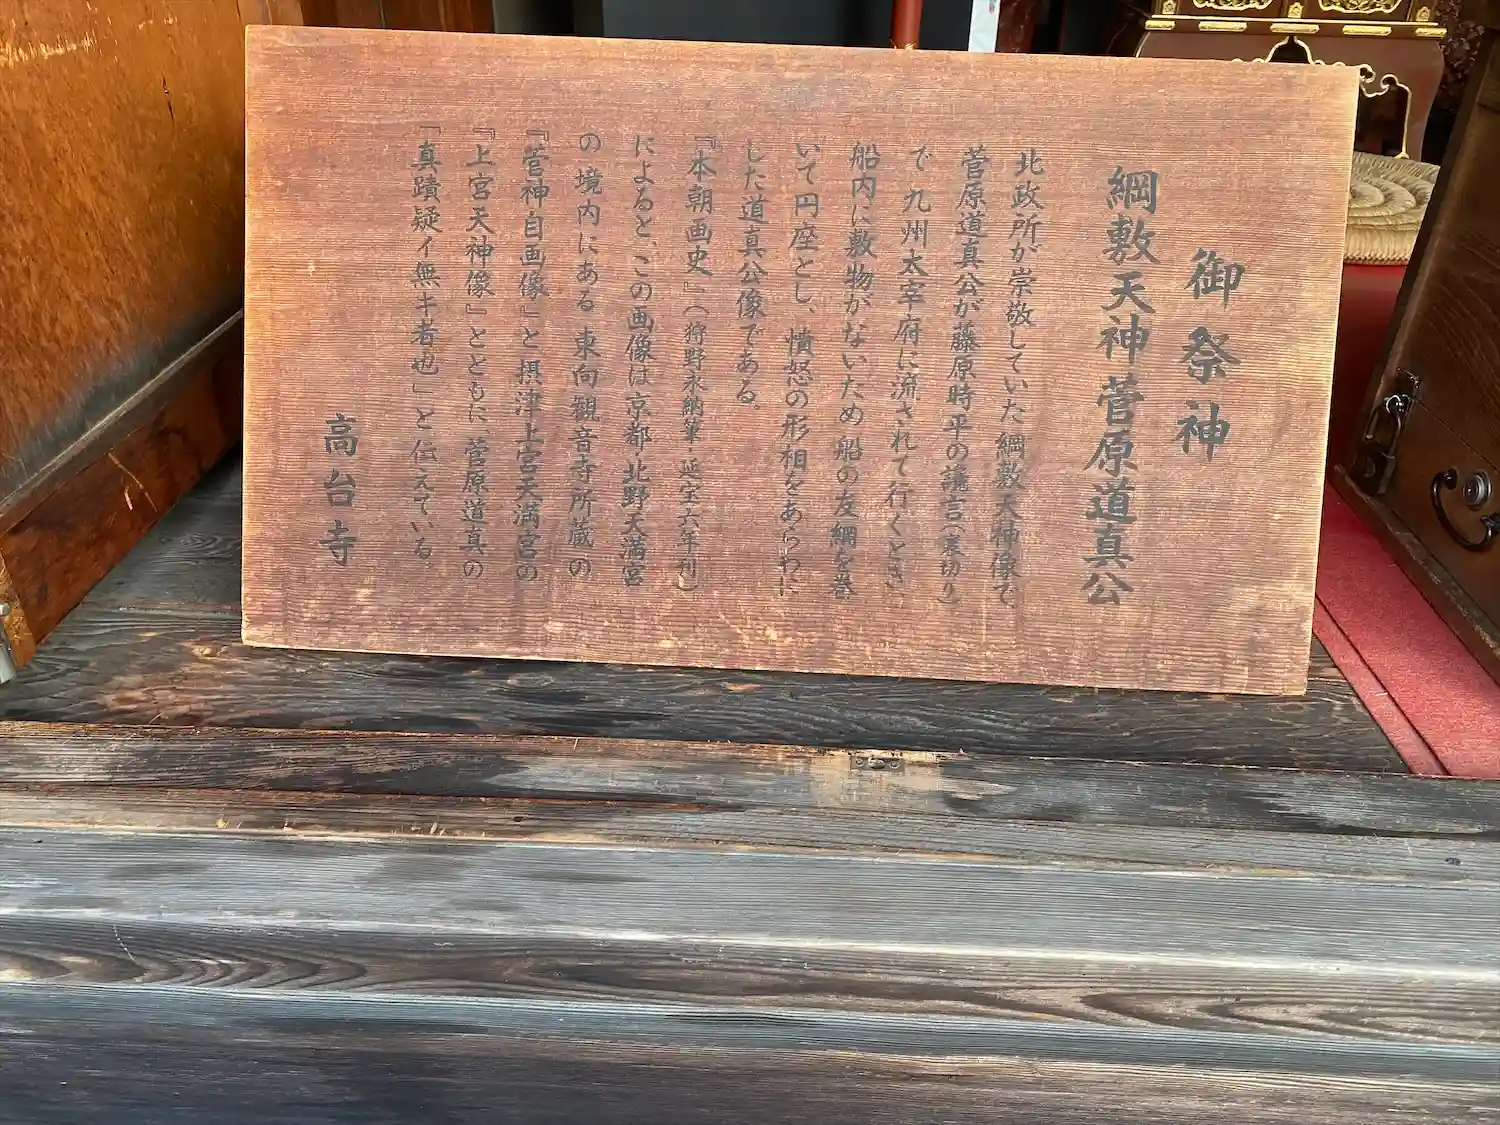 御祭神
綱敷天神菅原道真公
北政所が崇敬していた綱敷天神像で
菅原道真公が藤原時平の讒言(裏切り)
で九州太宰府に流されて行くとき、
船内に敷物がないため船の友綱を巻
いて円座とし、憤怒の形相をあらわに
した道真公像である。
『本朝画史』(狩野永納筆・延宝六年刊)
によると、この画像は京都北野天満宮
の境内にある東向観音寺所蔵の
『菅神自画像』と摂津上宮天満宮の
『上宮天神像』とともに菅原道真の
「真蹟疑イ無キ者也」と伝えている。
高台寺